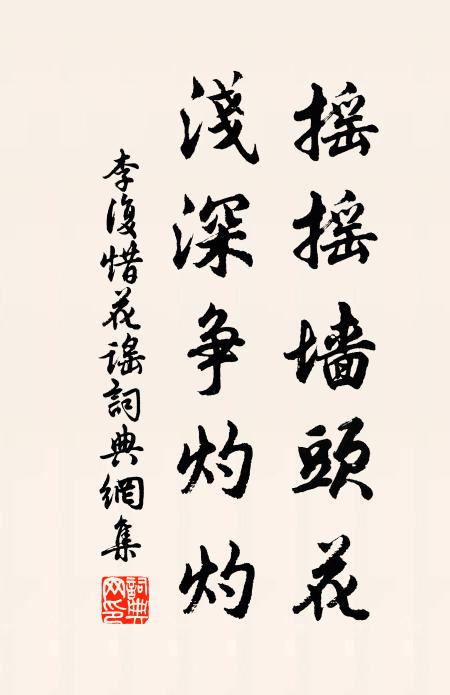 搖搖墻頭花
淺深争灼灼
李復惜花謠詞典網集
詞典網印